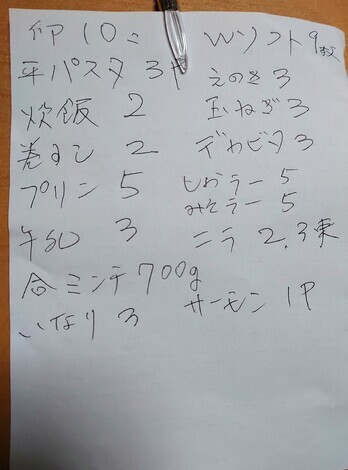 卵10コ
平パスタ 3
炊飯 2
巻すし 2
プリン 5
牛乳 3
合ミンチ700g
いなり 3
Wソフト9枚
えのき 3
玉ねぎ 3
デカビタ 3
しおラー 5
みそラー 5
ニラ 2.3束
サーモン 1P